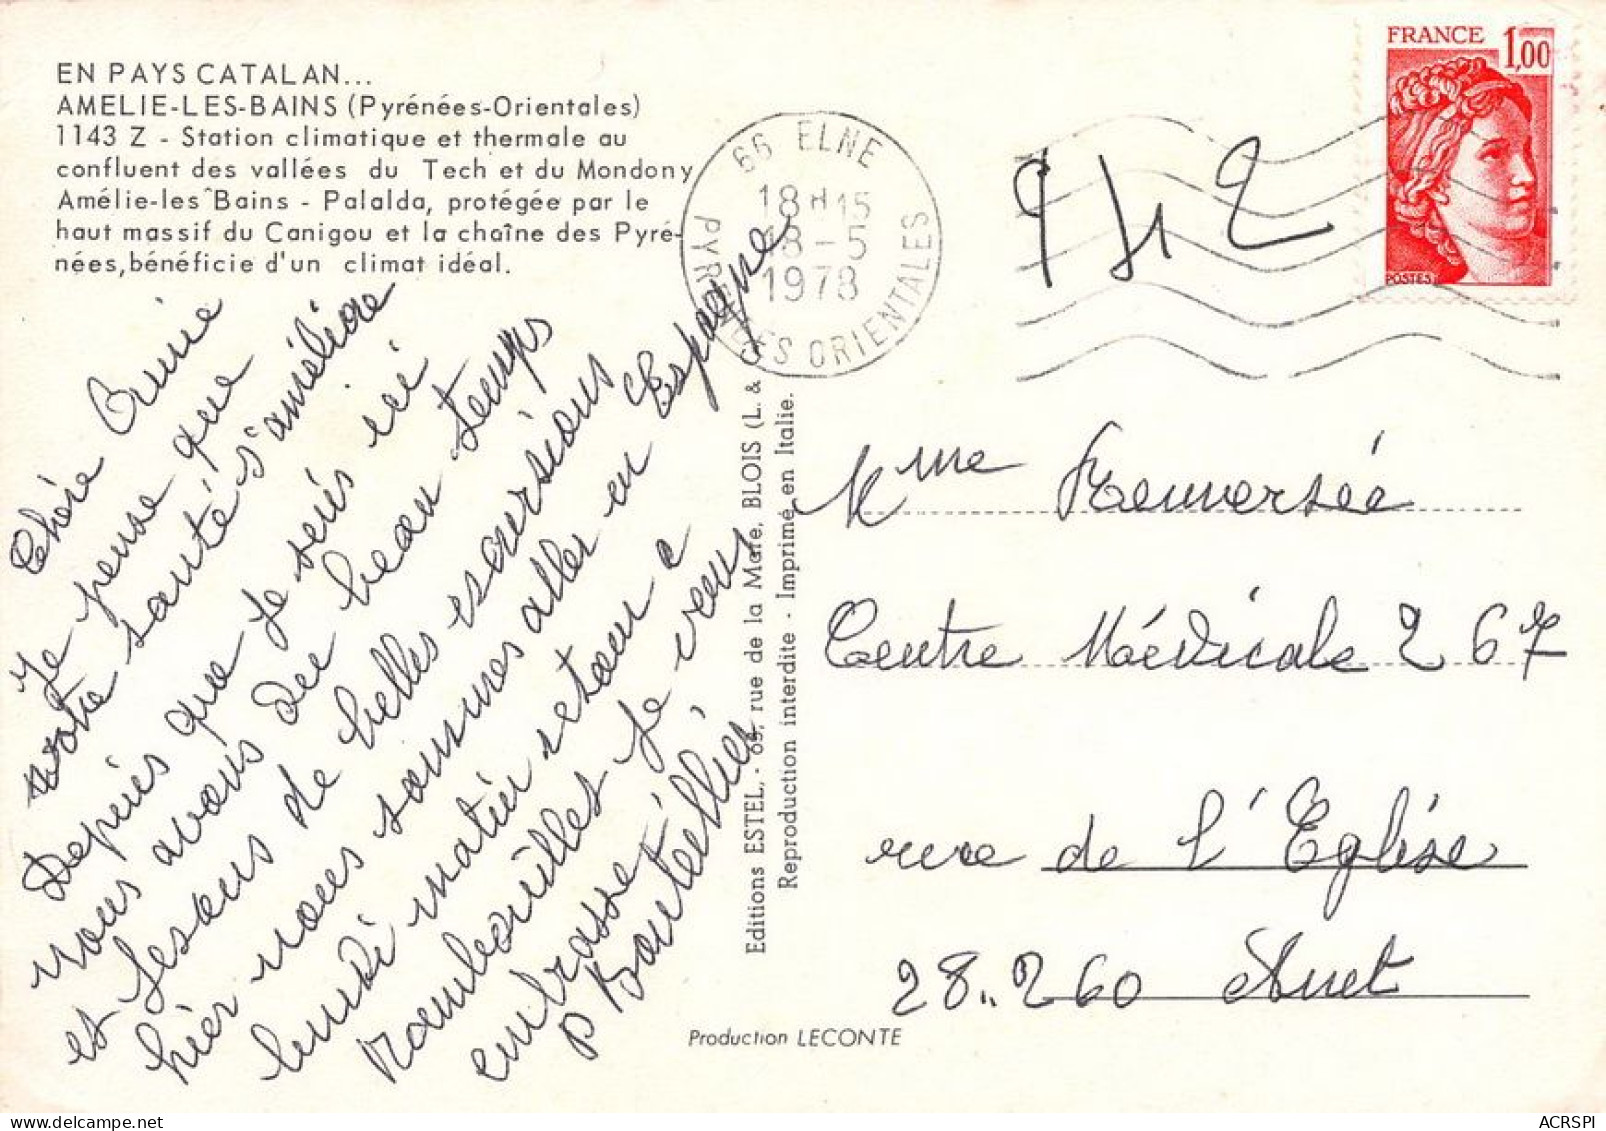 EN PAYS CATALAN...
AMELIE-LES-BAINS (Pyrénées-Orientales)
1143 Z - Station climatique et thermale au
confluent des vallées du Tech et du Mondony
Amélie-les Bains - Palalda, protégée par le
haut massif du Canigou et la chaîne des Pyré-
nées, bénéficie d'un climat idéal.
66 ELNE
18H15
18-5
1978
PYRENEES ORIENTALES
FRANCE 1,00
POSTES
942
Chère Amie
Je pense que
votre santé s'améliore
Depuis que je suis ici
nous avons du beau temps
et fesons de belles escursions
hier nous sommes aller en Espagne
lundi matin retour a
Rambouillet je veux
embrasse
P Bouteillier
Editions ESTEL, - 65, rue de la Mare, BLOIS (L. &
Reproduction interdite - Imprimé en Italie.
Production LECONTE
Mme
Centre Médicale 267
rue de l'Eglise
28.260 Anet
ACRSPI